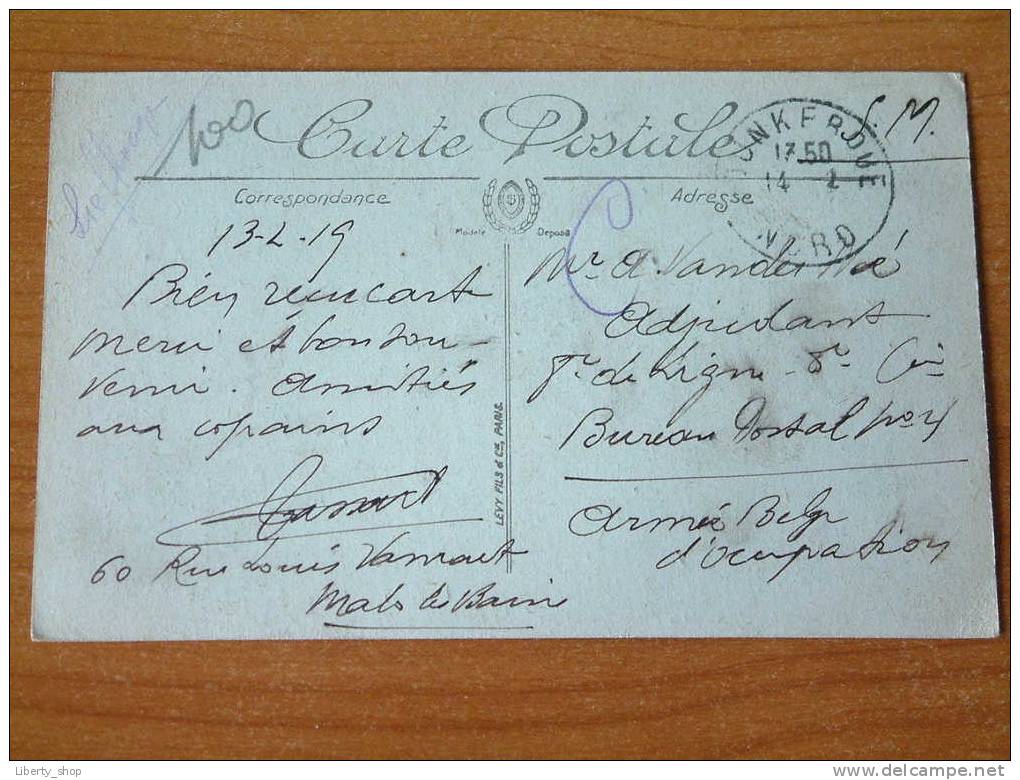 100
Carte Postale
S. M.
DUNKERQUE
17.50
14 2
NORD
Correspondance
Adresse
Modèle Déposé
13-2-19
Bien reçu carte
merci et bon sou-
venir. Amitiés
aux copains
60 Rue Louis
Malo les Bains
LEVY FILS & Cie, PARIS.
Mr A
Adjudant
de Ligne - 8e Cie
Bureau Postal
Armée Belge
d'ocupation
Liberty_shop
delcampe.net